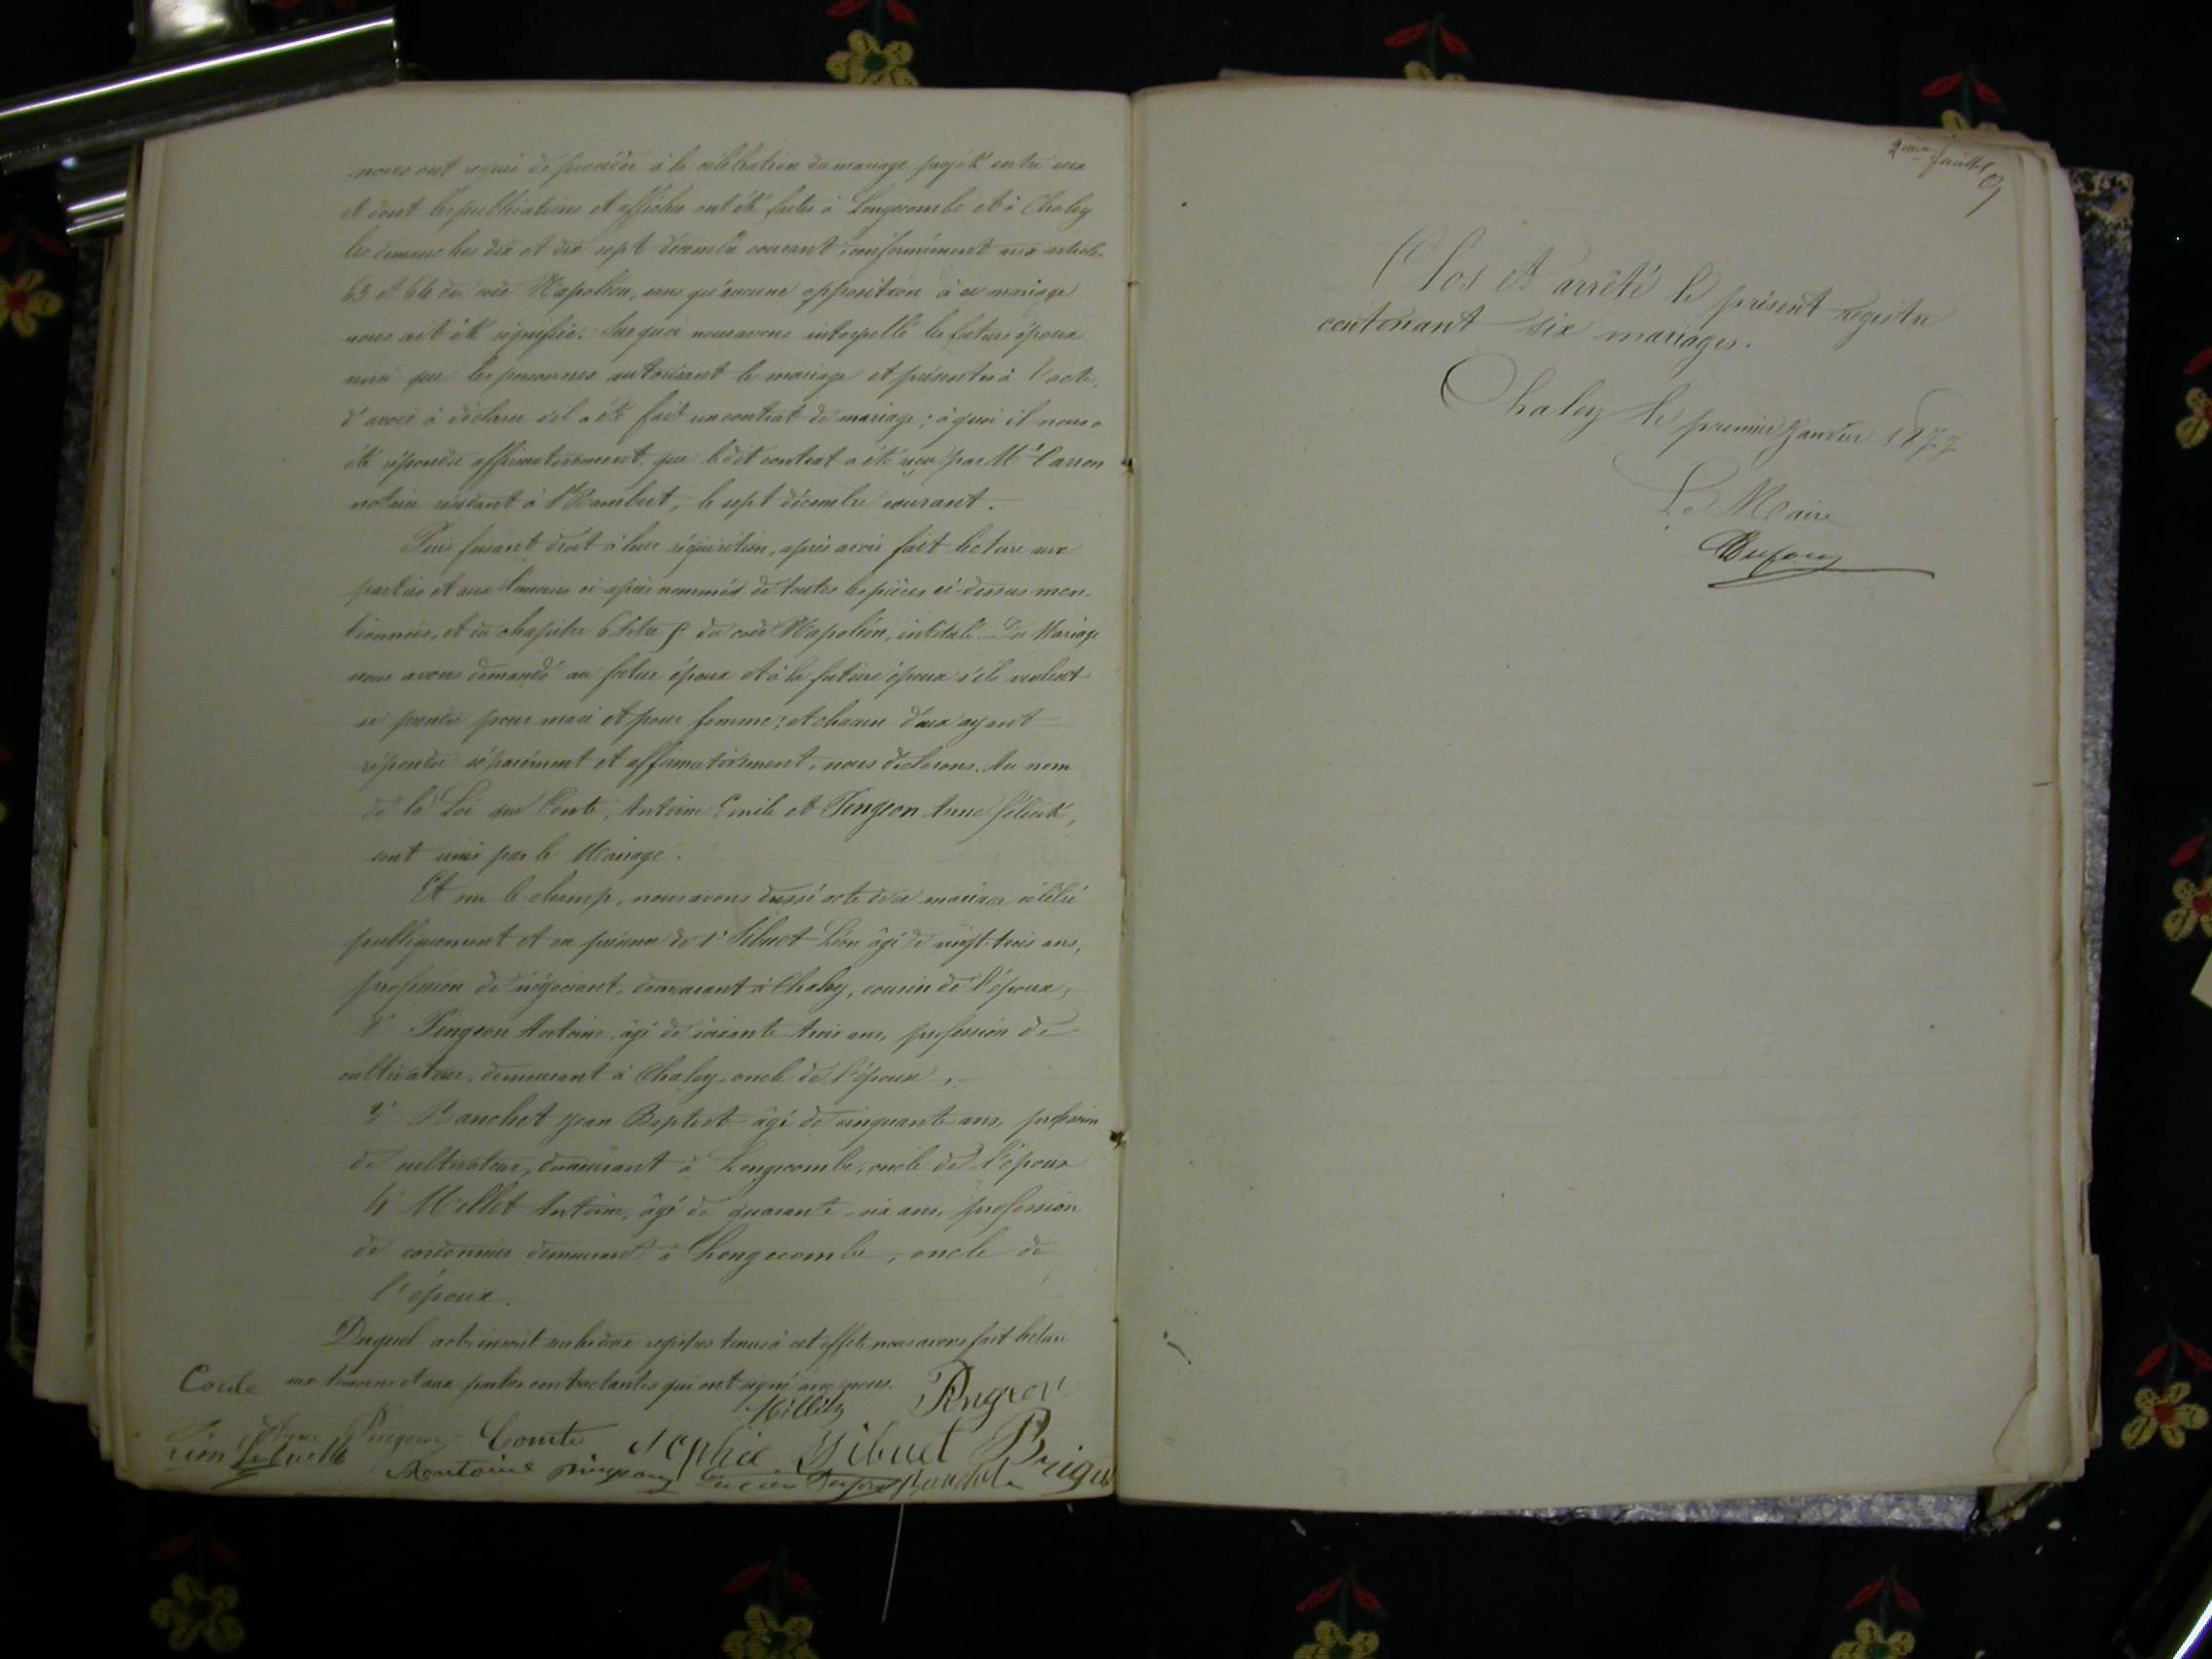 nous ont requis de procéder à la célébration du mariage projeté entre eux
et dont les publications et affiches ont été faites à Longecombe et à Chaley
les dimanches dix et dix sept décembre courant, conformément aux articles
63 et 64 du code Napoléon, sans qu'aucune opposition à ce mariage
nous ait été signifiée. Sur quoi nous avons interpellé les futurs époux
ainsi que les personnes autorisant le mariage et présentes à l'acte,
d'avoir à déclarer s'il a été fait un contrat de mariage ; à quoi il nous a
été répondu affirmativement, que ledit contrat a été reçu par Me Carron
notaire résidant à St Rambert, le sept décembre courant.
Puis faisant droit à leur réquisition, après avoir fait lecture aux
parties et aux témoins ci après nommés de toutes les pièces ci-dessus men-
tionnées, et du chapitre 6 titre 5 du code Napoléon, intitulé Du Mariage
nous avons demandé au futur époux et à la future épouse s'ils veulent
se prendre pour mari et pour femme ; et chacun d'eux ayant
répondu séparément et affirmativement, nous déclarons, Au nom
de la Loi que Comte, Antoine Emile et Pingeon Anne Félicité,
sont unis par le Mariage.
Et sur le champ, nous avons dressé acte de ce mariage célébré
publiquement et en présence de 1° Sibuet Léon âgé de vingt-trois ans,
profession de négociant, demeurant à Chaley, cousin de l'époux,
2° Pingeon Antoine, âgé de soixante-trois ans, profession de
cultivateur, demeurant à Chaley, oncle de l'épouse,
3° Banchet Jean Baptist âgé de cinquante ans, profession
de cultivateur, demeurant à Longecombe, oncle de l'époux
4° Millet Antoine, âgé de quarante-six ans, profession
de cordonnier demeurant à Longecombe, oncle de
l'époux.
Duquel acte, inscrit sur les deux registres tenus à cet effet, nous avons fait lecture
aux témoins et aux parties contractantes qui ont signé avec nous.
Comte
Millet Pingeon
Anne Pingeon Comte Sophie Sibuet
Léon Sibuet Antoine Pingeon Banchet
2ème feuillet
Clos et arrêté le présent registre
contenant six mariages.
Chaley le premier Janvier 1877
Le Maire
Dufour